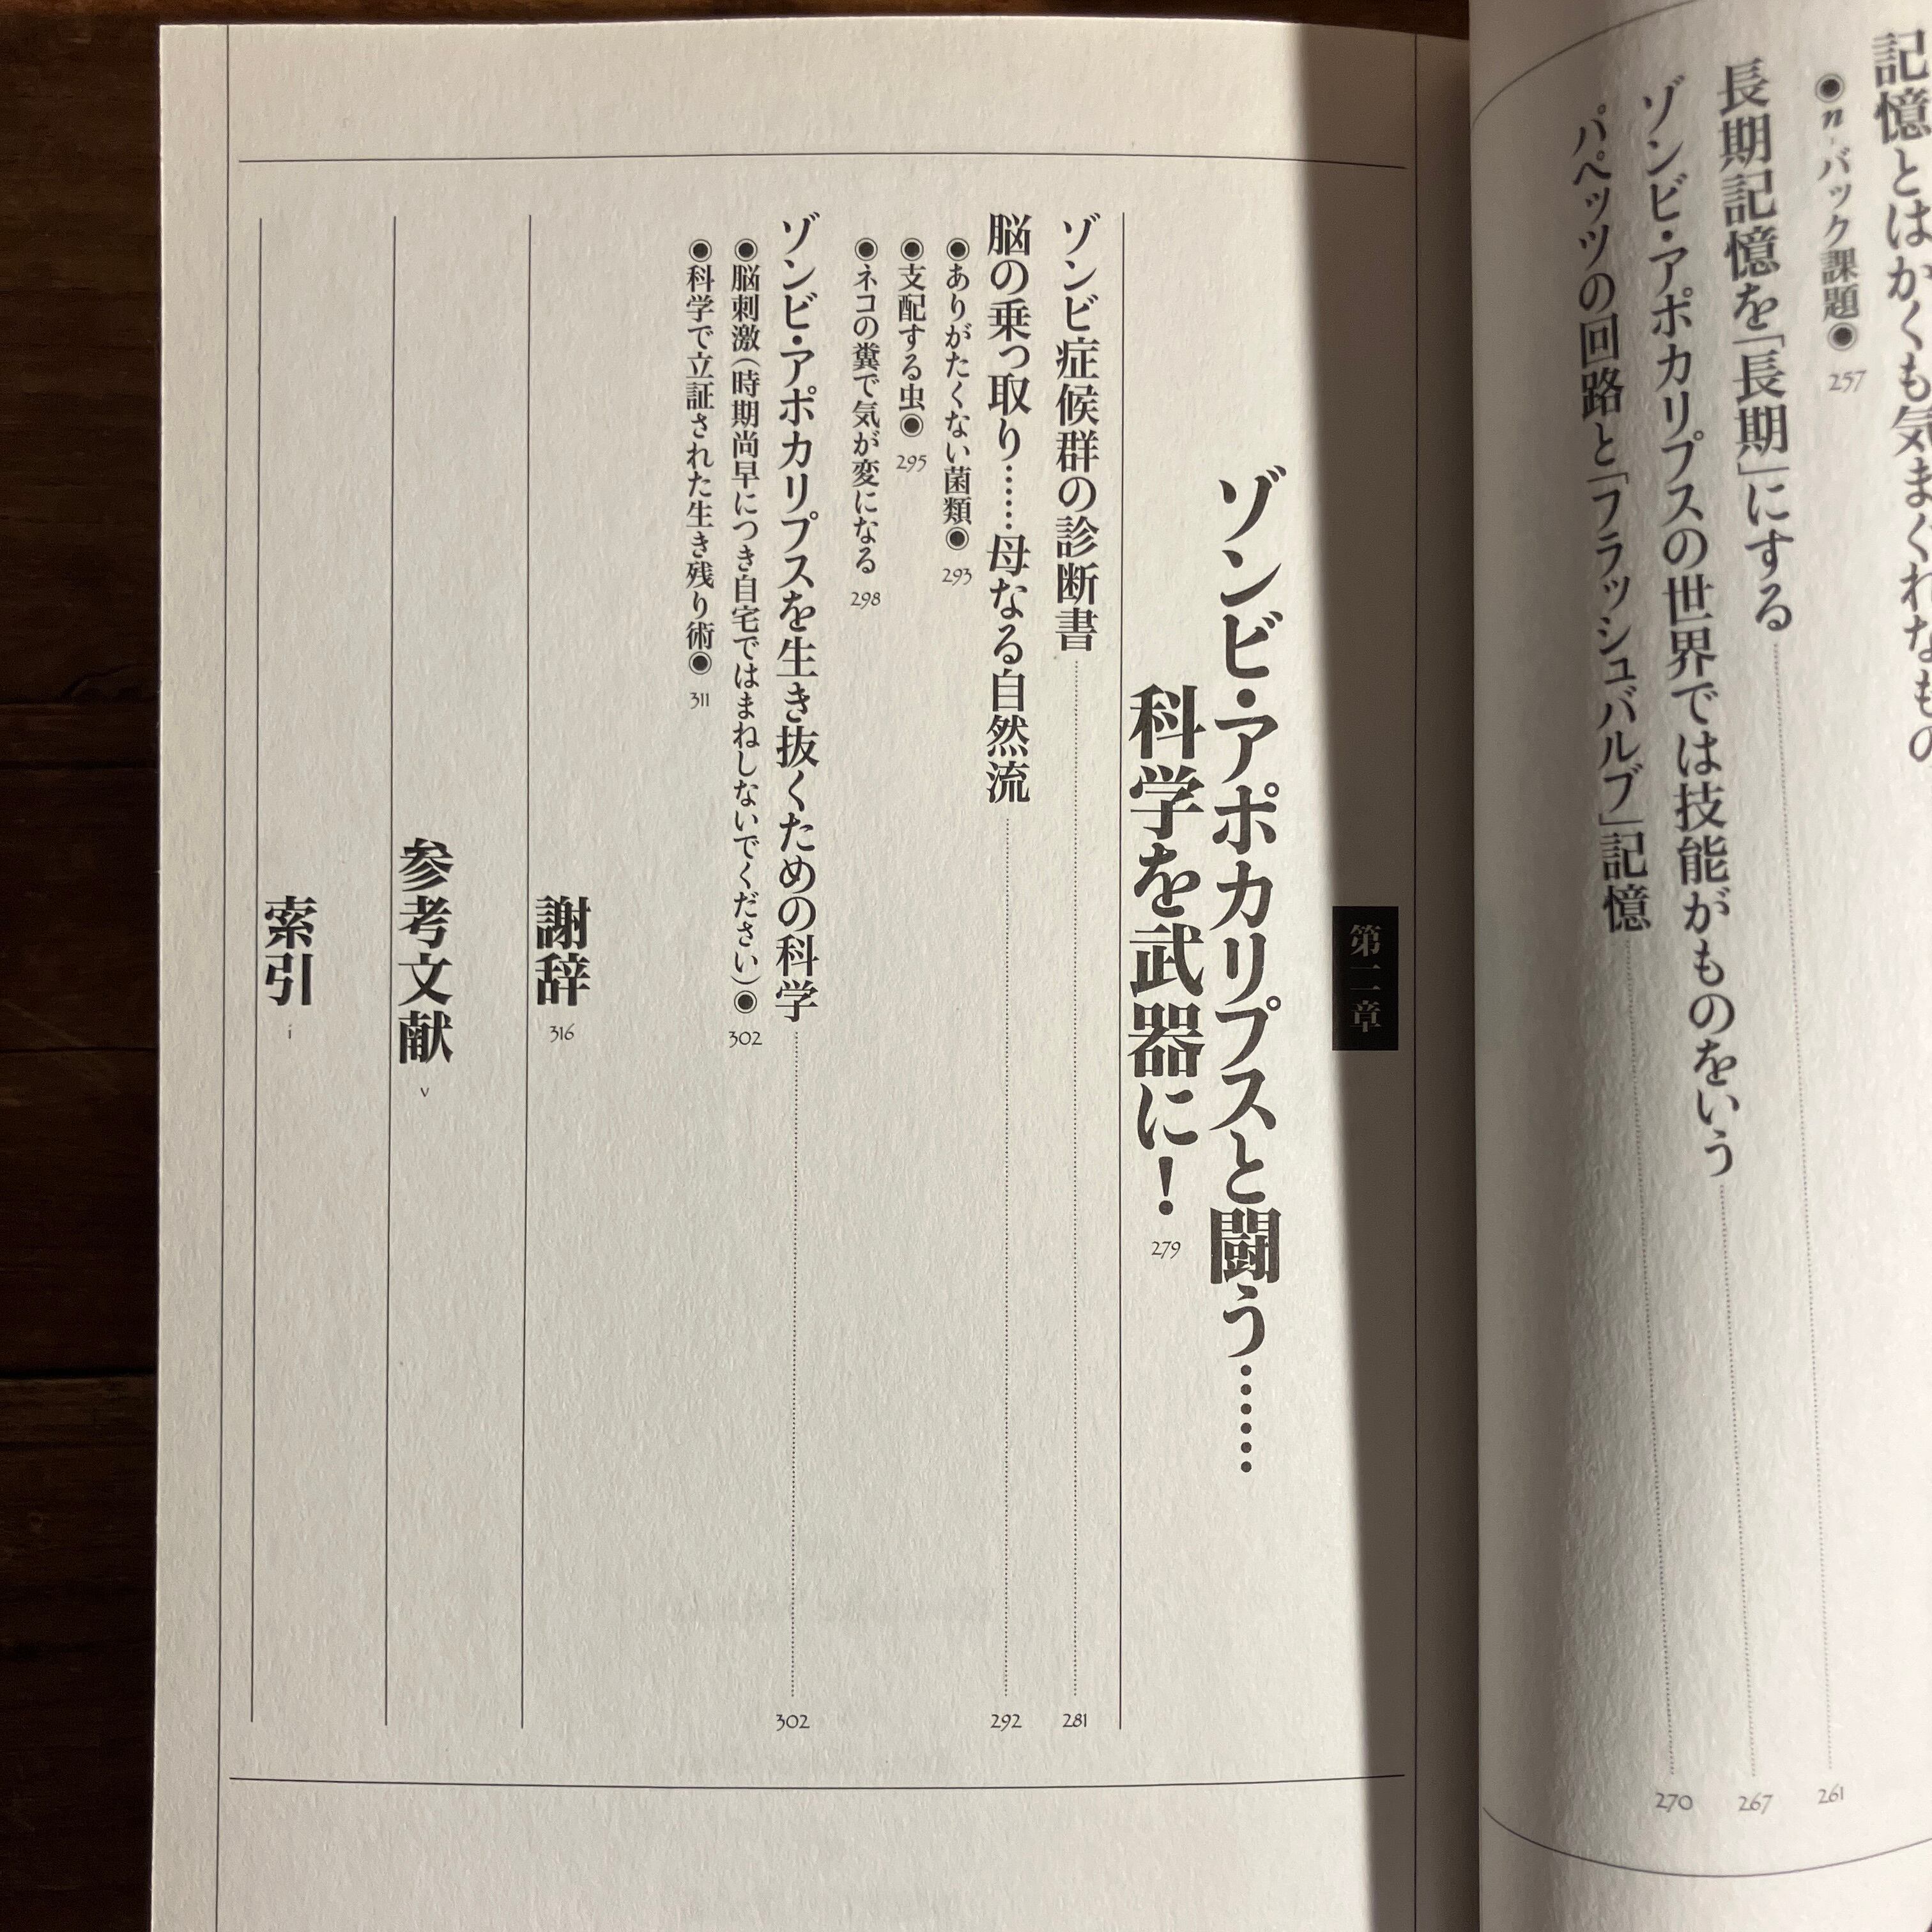 記憶とはかくも気まぐれなもの
◉n-バック課題◉ 257
長期記憶を「長期」にする 261
ゾンビ・アポカリプスの世界では技能がものをいう 267
パペッツの回路と「フラッシュバルブ」記憶 270
第一一章
ゾンビ・アポカリプスと闘う……
科学を武器に! 279
ゾンビ症候群の診断書 281
脳の乗っ取り……母なる自然流 292
◉ありがたくない菌類◉ 293
◉支配する虫◉ 295
◉ネコの糞で気が変になる 298
ゾンビ・アポカリプスを生き抜くための科学 302
◉脳刺激(時期尚早につき自宅ではまねしないでください)◉ 302
◉科学で立証された生き残り術◉ 311
謝辞 316
参考文献 v
索引 i